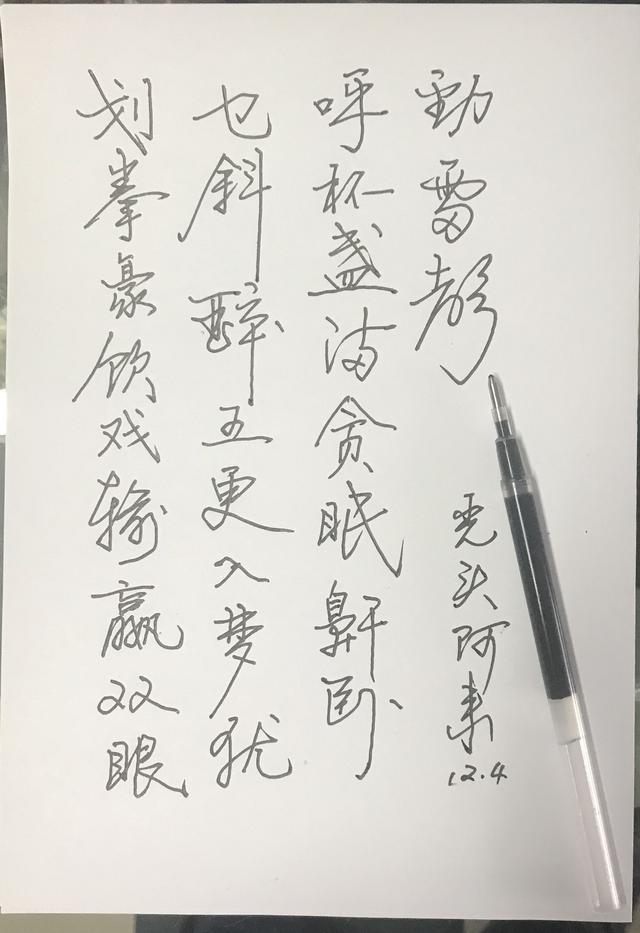 划拳豪饮戏输赢双眼
乜斜醉五更入梦犹
呼杯盏满贪眠鼾卧
勁雷声
光头阿
12.4